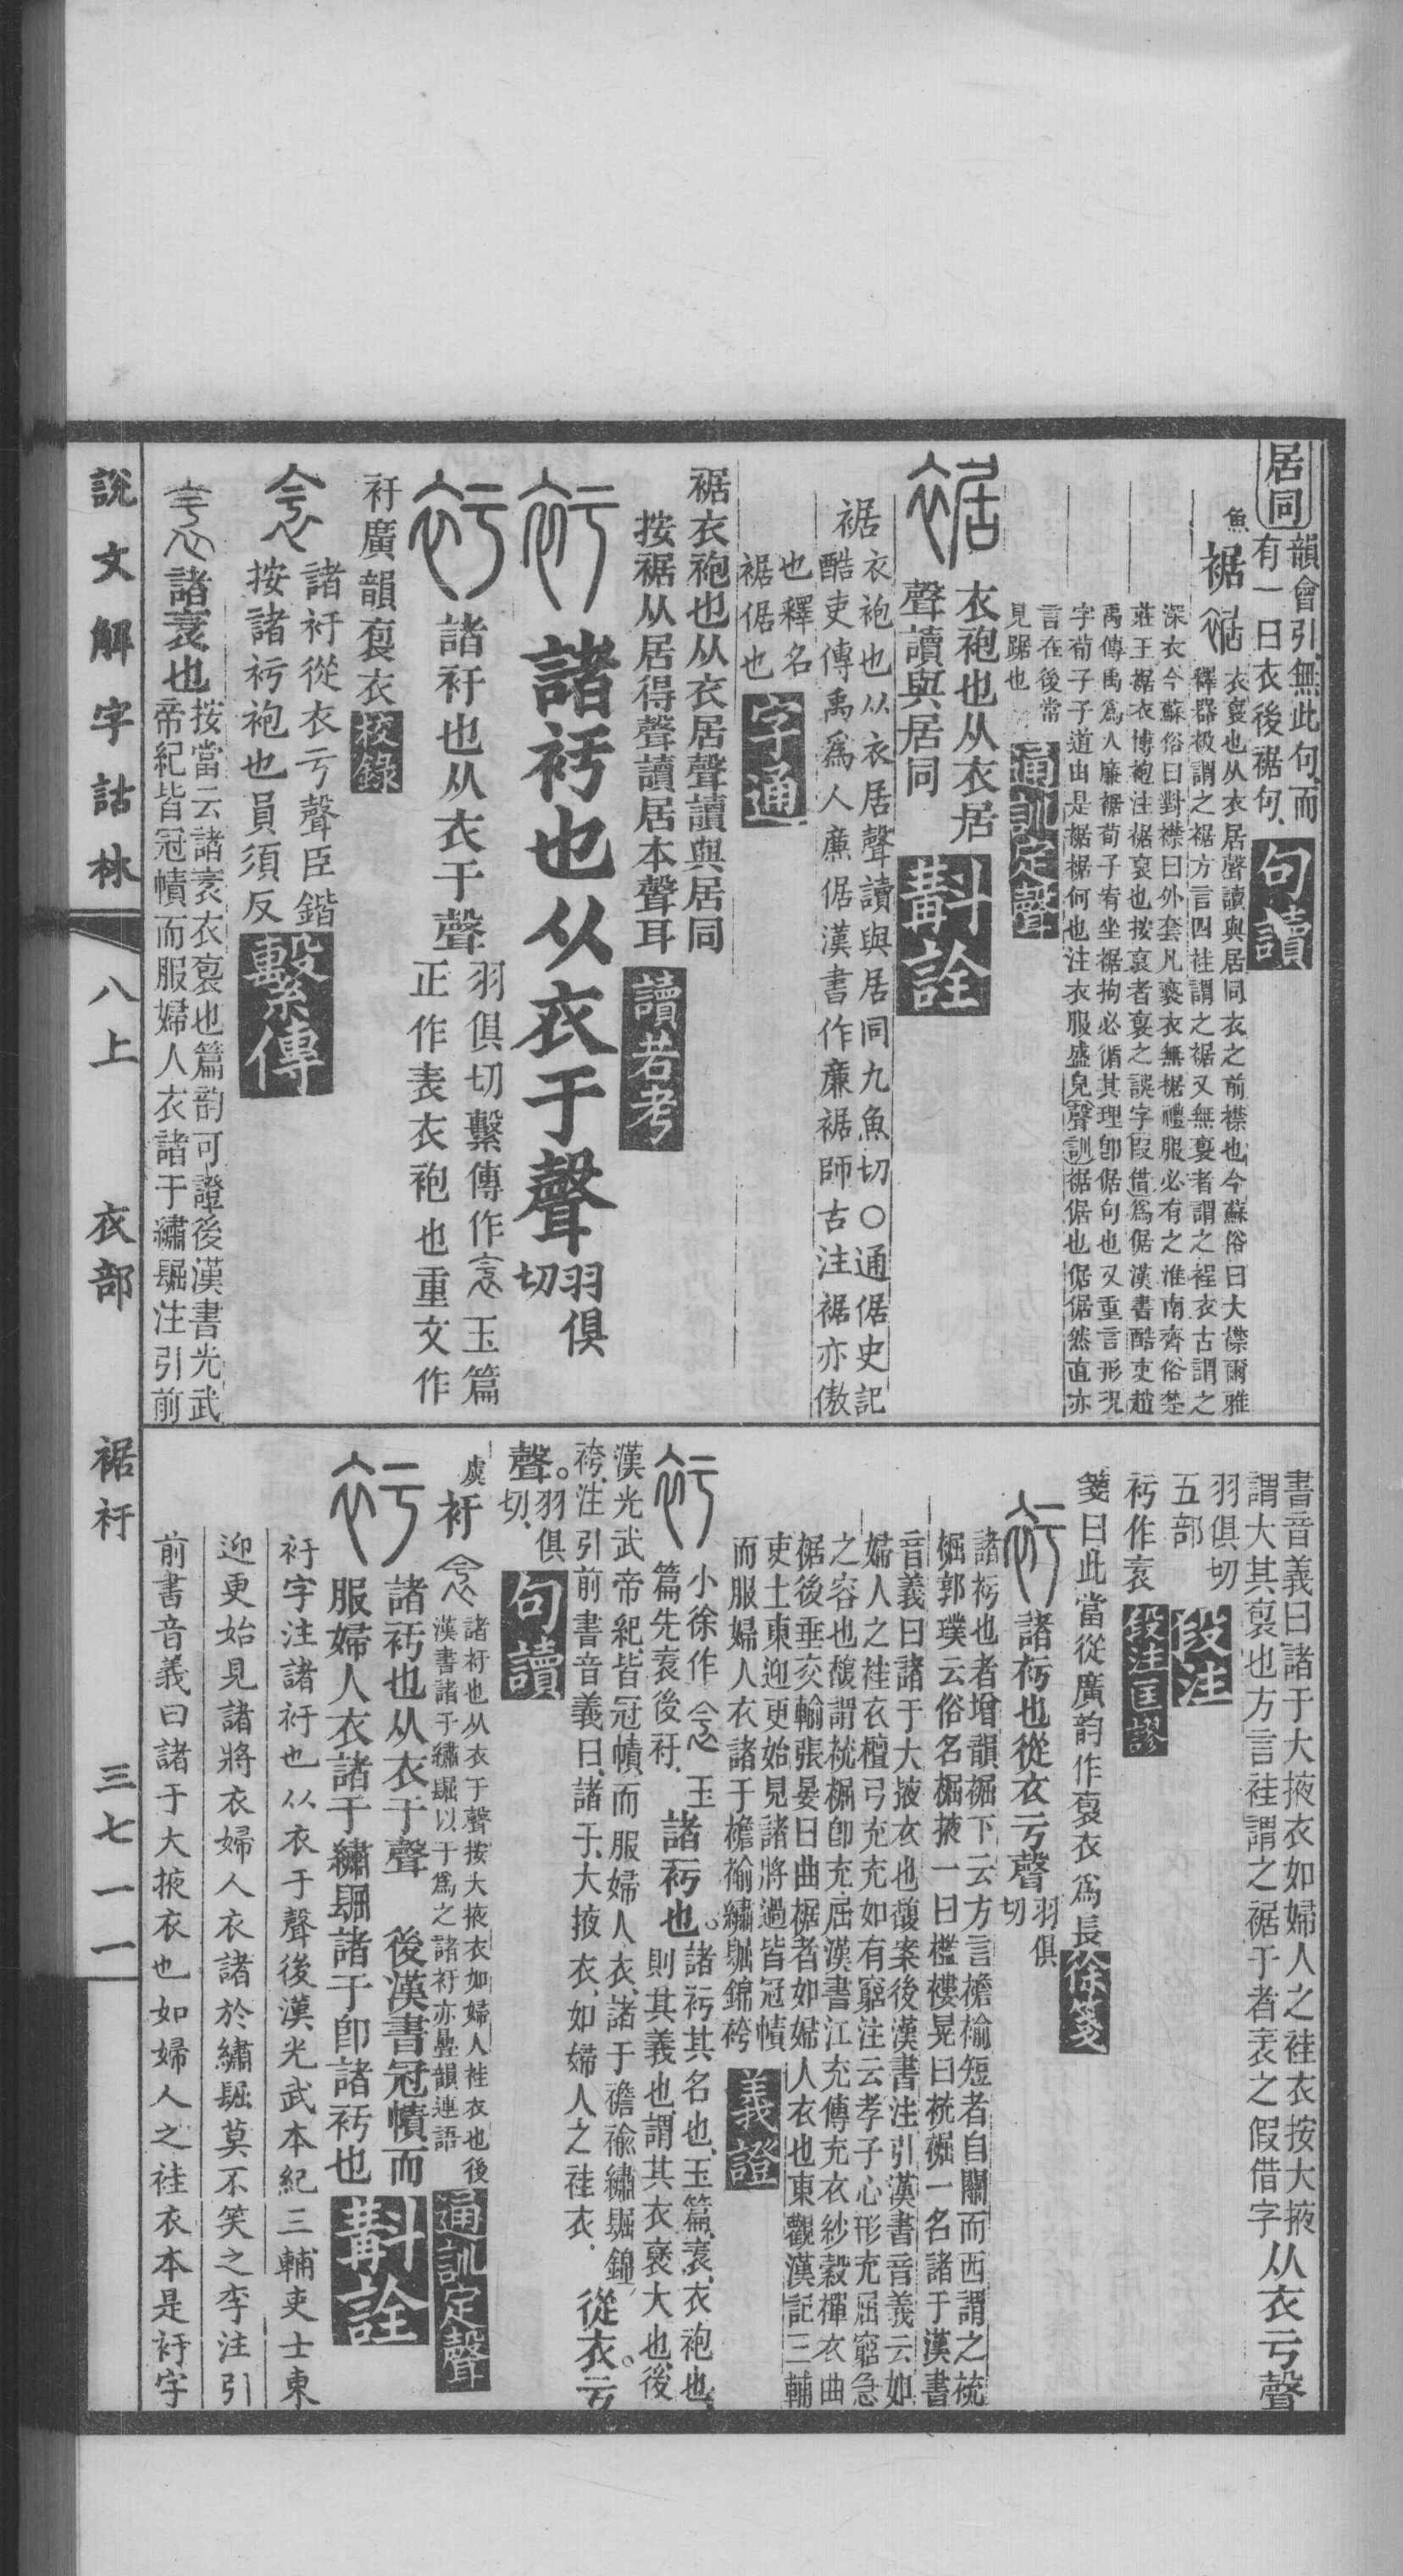 居同
韻會引無此句、而
有一曰衣後裾句、
句讀
魚
裾
衣袌也从衣居聲讀與居同衣之前襟也今蘇俗曰大襟爾雅
釋器极謂之裾方言四袿謂之裾又無袌者謂之裎衣古謂之
深衣今蘇俗曰對襟曰外套凡褻衣無裾禮服必有之淮南齊俗楚
莊王裾衣博袍注裾裒也按裒者袌之誤字叚借爲倨漢書酷吏趙
禹傳禹爲人廉裾荀子宥坐裾拘必循其理卽倨句也又重言形況
字荀子子道由是裾裾何也注衣服盛皃聲訓裾倨也倨倨然直亦
言在後常
見踞也
通訓定聲
衣袍也从衣居
聲讀與居同
斠詮
裾
衣袍也从衣居聲讀與居同九魚切〇通倨史記
酷吏傳禹爲人廉倨漢書作廉裾師古注裾亦傲
也釋名
裾倨也
字通
裾衣袍也从衣居聲讀與居同
按裾从居得聲讀居本聲耳
讀若考
諸衧也从衣于聲
羽俱
切
諸衧也从衣于聲
羽俱切繫傳作玉篇
正作袬衣袍也重文作
衧廣韻袌衣
校錄
諸衧從衣亏聲臣鍇
按諸衧袍也員須反
繫傳
諸袬也
按當云諸袬衣袌也篇韵可證後漢書光武
帝紀皆冠幘而服婦人衣諸于繡䘿注引前
說文解字詁林
八上
衣部
裾衧
三七一一
書音義曰諸于大掖衣如婦人之袿衣按大掖
謂大其袌也方言袿謂之裾于者袬之假借字
从衣亏聲
羽俱切
五部
段注
衧作袬
段注匡謬
箋曰此當從廣韵作袌衣爲長
徐箋
諸衧也從衣亏聲
羽俱
切
諸衧也者增韻䘿下云方言襜褕短者自關而西謂之裗
䘿郭璞云俗名䘿掖一曰襤褸晃曰裗䘿一名諸于漢書
音義曰諸于大掖衣也馥案後漢書注引漢書音義云如
婦人之袿衣檀弓充充如有窮注云孝子心形充屈窮急
之容也馥謂裗䘿卽充屈漢書江充傳充衣紗縠襌衣曲
裾後垂交輸張晏曰曲裾者如婦人衣也東觀漢記三輔
吏士東迎更始見諸將過皆冠幘
而服婦人衣諸于襜褕繡䘿錦袴
義證
小徐作玉
篇先袬後衧、
諸衧也。
諸衧其名也、玉篇、袬、衣袍也、
則其義也謂其衣褎大也、後
漢光武帝紀、皆冠幘、而服婦人衣、諸于襜褕繡䘿錦
袴、注引前書音義曰、諸于、大掖衣、如婦人之袿衣、
從衣。亏
聲。
羽俱
切、
句讀
虞
衧
諸衧也从衣于聲按大掖衣如婦人袿衣也後
漢書諸于繡䘿以于爲之諸衧亦疊韻連語
通訓定聲
諸衧也从衣于聲 後漢書冠幘而
服婦人衣諸于繡䘿諸于卽諸衧也
斠詮
衧字注諸衧也从衣于聲後漢光武本紀三輔吏士東
迎更始見諸將衣婦人衣諸於繡䘿莫不笑之李注引
前書音義曰諸于大掖衣也如婦人之袿衣本是衧字